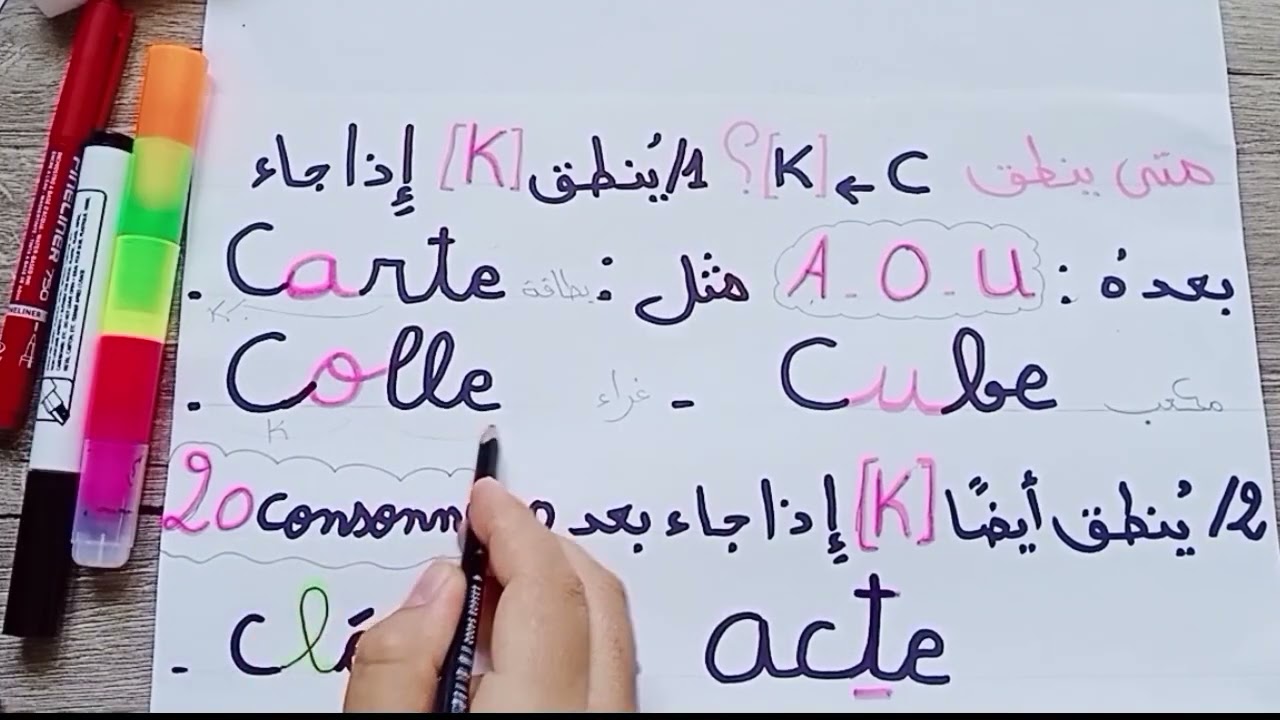 متى ينطق C ← [K]؟ 1/ يُنطق [K] إِذا جاء
بعدهُ : A - O - U مثل : بطاقة Carte .
K
مكعب Cube - غراء Colle .
K
2/ يُنطق أيضًا [K] إِذا جاء بعده 20
acte
FINELINER 750